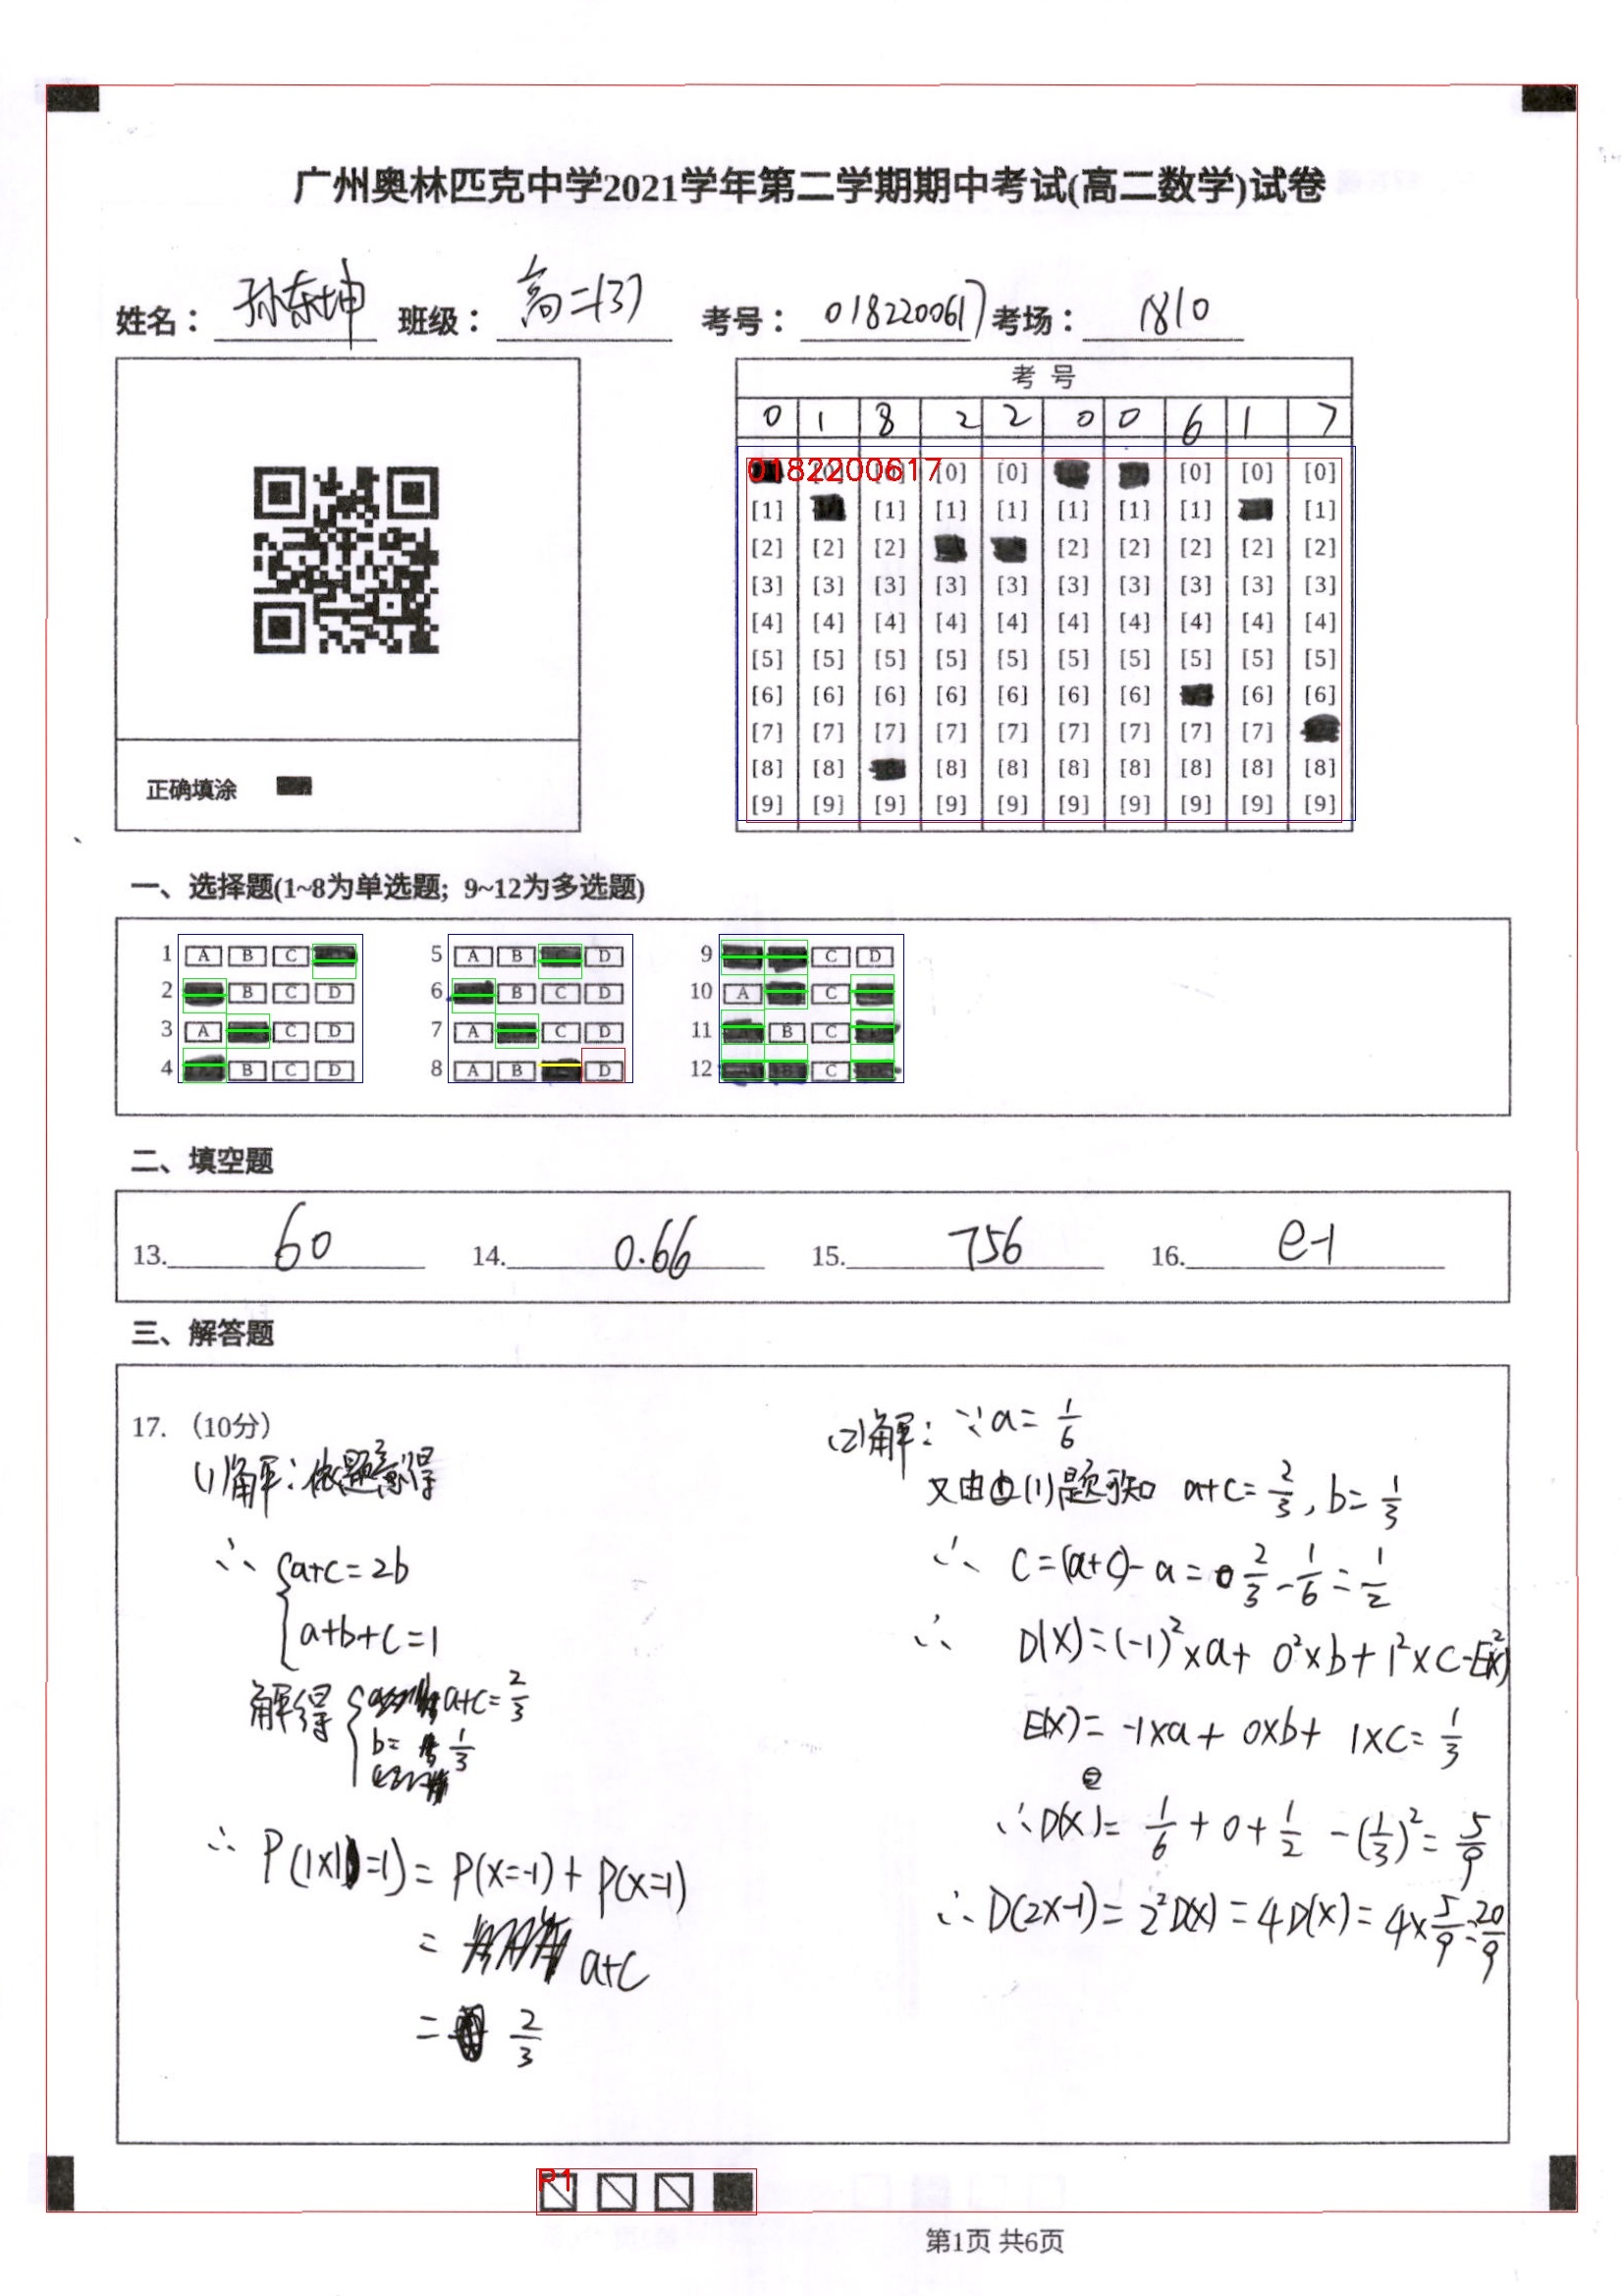 广州奥林匹克中学2021学年第二学期期中考试(高二数学)试卷
姓名： 孙东坤 班级： 高二(3) 考号： 0182200617 考场： 1810
考 号
0 1 8 2 2 0 0 6 1 7
0182200617 [0] [0] [0] [0] [0]
[1] [1] [1] [1] [1] [1] [1] [1]
[2] [2] [2] [2] [2] [2] [2] [2]
[3] [3] [3] [3] [3] [3] [3] [3] [3] [3]
[4] [4] [4] [4] [4] [4] [4] [4] [4] [4]
[5] [5] [5] [5] [5] [5] [5] [5] [5] [5]
[6] [6] [6] [6] [6] [6] [6] [6] [6]
[7] [7] [7] [7] [7] [7] [7] [7] [7]
[8] [8] [8] [8] [8] [8] [8] [8] [8]
[9] [9] [9] [9] [9] [9] [9] [9] [9] [9]
正确填涂
一、选择题(1~8为单选题; 9~12为多选题)
1 A B C 5 A B C D 9 C D
2 B C D 6 B C D 10 A C
3 A C D 7 A C D 11 B C
4 B C D 8 A B D 12 C
二、填空题
13. 60 14. 0.66 15. 756 16. e-1
三、解答题
17.（10分）
(1)解：依题意得
∴ {a+c=2b
a+b+c=1
解得 { a+c=2/3
b= 1/3
∴ P(|X|=1)= P(X=-1)+P(X=1)
= a+c
= 2/3
(2)解：∵a=1/6
又由(1)题可知 a+c=2/3, b=1/3
∴ C=(a+c)-a= 2/3-1/6=1/2
∴ D(X)=(-1)²×a+ 0²×b+1²×C-E²(X)
E(X)= -1×a+ 0×b+ 1×C=1/3
∴D(X)= 1/6+0+1/2-(1/3)²=5/9
∴D(2X-1)=2²D(X)=4D(X)=4×5/9=20/9
P1
第1页 共6页